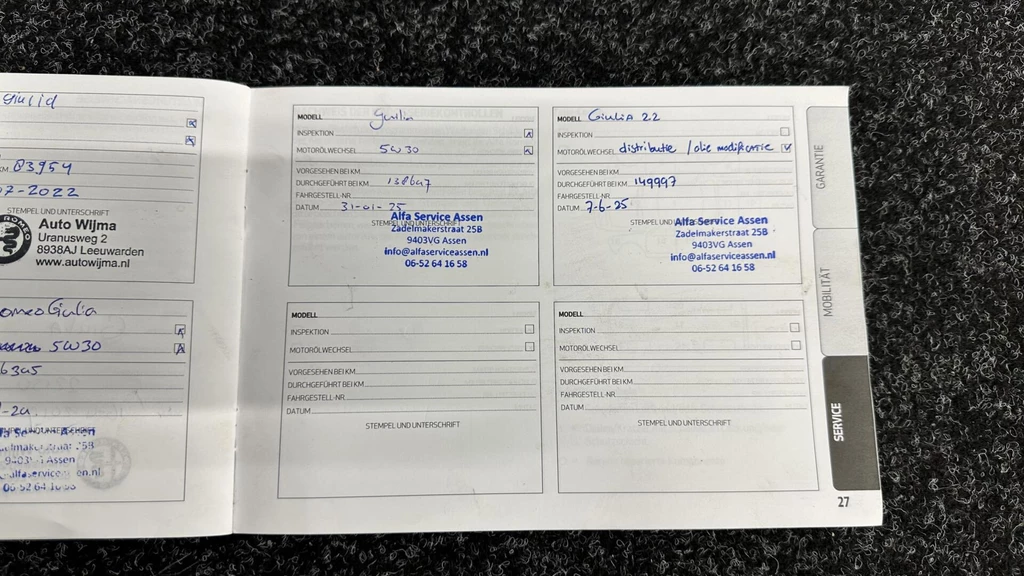 Giulia
KM 83954
07-2022
STEMPEL UND UNTERSCHRIFT
Auto Wijma
Uranusweg 2
8938AJ Leeuwarden
www.autowijma.nl
omeo Giulia
5W30
STEMPEL UND UNTERSCHRIFT
Alfa Service Assen
Zadelmakerstraat 25B
9403VG Assen
alfaserviceassen.nl
06-52 64 16 58
MODELL Giulia
INSPEKTION
MOTORÖLWECHSEL 5W30
VORGESEHEN BEI KM
DURCHGEFÜHRT BEI KM
FAHRGESTELL-NR
DATUM 31-01-25
STEMPEL UND UNTERSCHRIFT
Alfa Service Assen
Zadelmakerstraat 25B
9403VG Assen
info@alfaserviceassen.nl
06-52 64 16 58
MODELL Giulia 2.2
INSPEKTION
MOTORÖLWECHSEL distributie / olie modificatie
VORGESEHEN BEI KM
DURCHGEFÜHRT BEI KM 149997
FAHRGESTELL-NR
DATUM 7-6-25
STEMPEL UND UNTERSCHRIFT
Alfa Service Assen
Zadelmakerstraat 25B
9403VG Assen
info@alfaserviceassen.nl
06-52 64 16 58
MODELL
INSPEKTION
MOTORÖLWECHSEL
VORGESEHEN BEI KM
DURCHGEFÜHRT BEI KM
FAHRGESTELL-NR
DATUM
STEMPEL UND UNTERSCHRIFT
MODELL
INSPEKTION
MOTORÖLWECHSEL
VORGESEHEN BEI KM
DURCHGEFÜHRT BEI KM
FAHRGESTELL-NR
DATUM
STEMPEL UND UNTERSCHRIFT
GARANTIE
MOBILITÄT
SERVICE
27